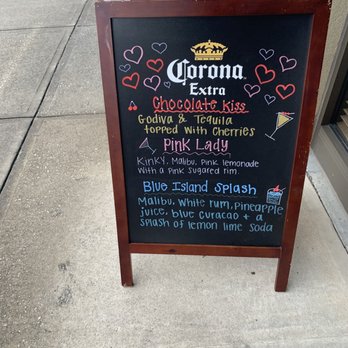 Corona
Extra
Chocolate Kiss
Godiva & Tequila
topped with Cherries
Pink Lady
Kinky, Malibu, Pink lemonade
With a Pink Sugared rim
Blue Island Splash
Malibu, White rum, Pineapple
juice, blue curacao + a
splash of lemon lime Soda